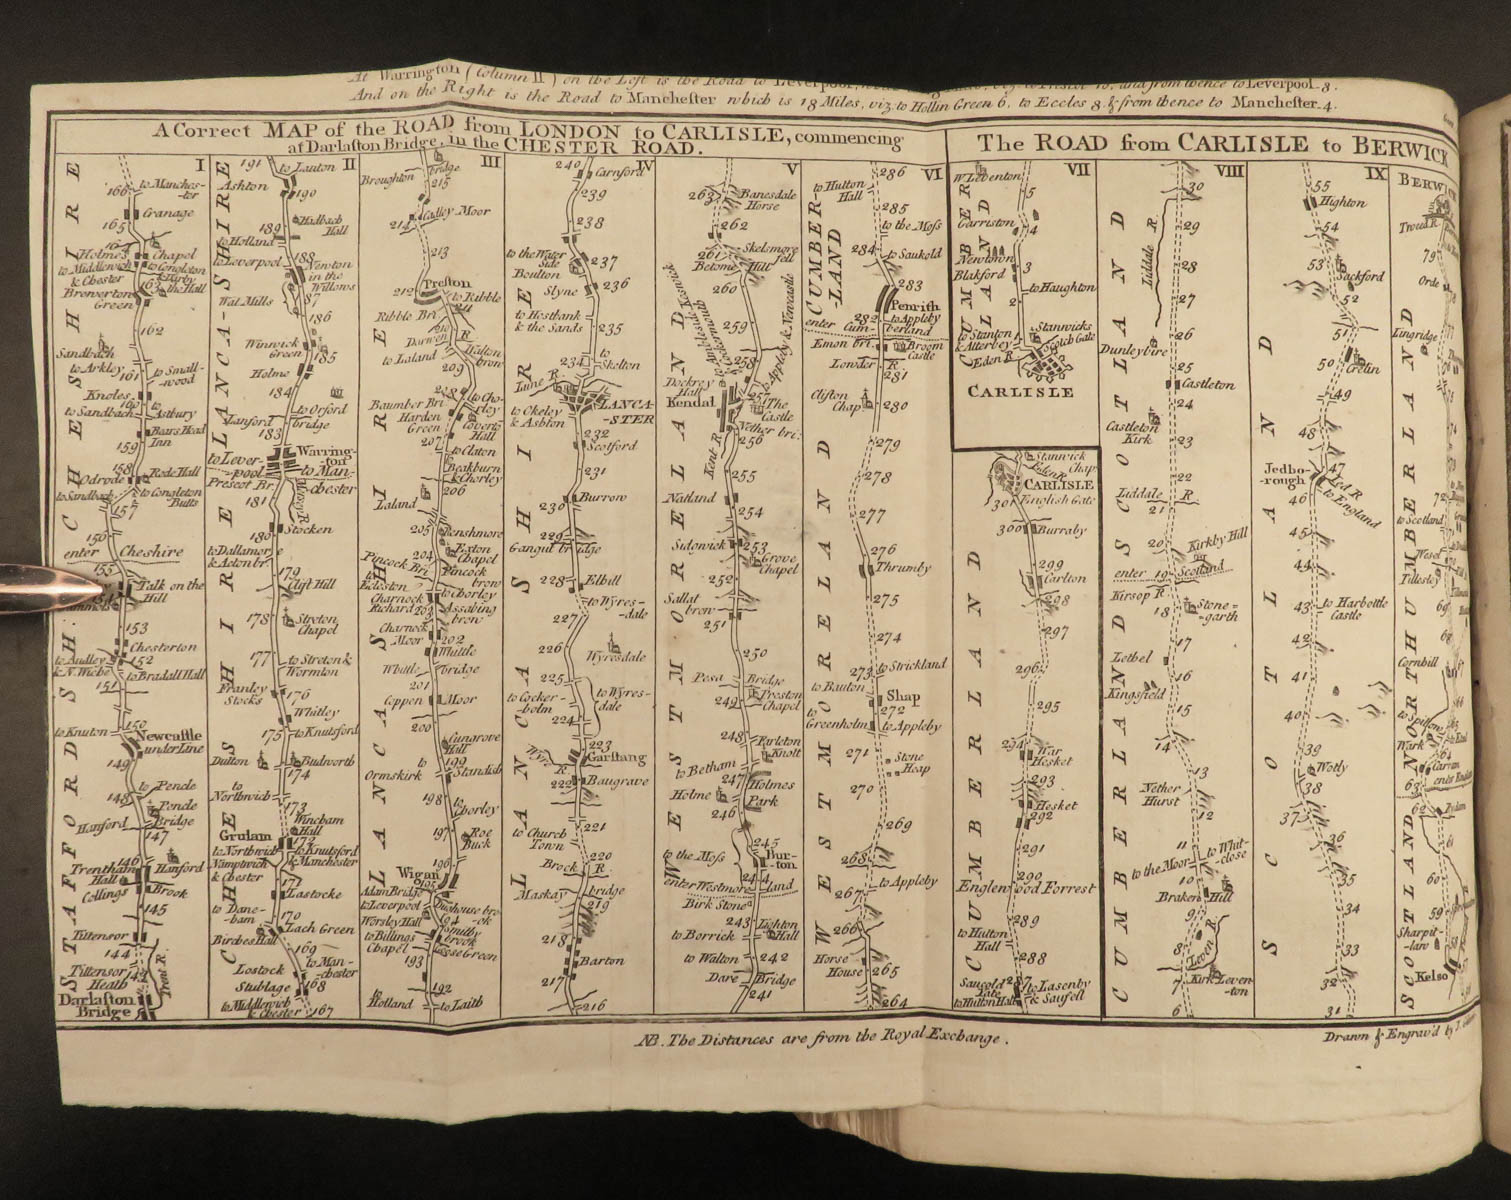 At Warrington (Column II) on the Left is the Road to
and from thence to Leverpool . 8 .
And on the Right is the Road to Manchester which is 18 Miles, viz. to Hollin Green 6, to Eccles 8. & from thence to Manchester . 4 .
A Correct MAP of the ROAD from LONDON to CARLISLE, commencing
at Darlaston Bridge, in the CHESTER ROAD.
The ROAD from CARLISLE to BERWICK
I
166
to Manches-
ter
Cranage
165
164
Chapel
Holmes
to Middlewich
to Congleton
& Chester
& Kirby
the Hall
163
Brewerton
Green
162
Sandbach
to Arkley
to Small-
wood
161
Knoles
160
to Sandbach
to Astbury
Bears Head
Inn
159
158
Rode Hall
Odrode
to Sandbach
to Congleton
Butts
157
156
enter Cheshire
155
Talk on the
Hill
153
Chesterton
to Audley
152
to Bradall Hall
151
150
to Knuton
Newcastle
underLine
149
to Pencle
148
Pencle
Bridge
Hanford
147
146
Trentham
Hall
Hanford
Collings
Brook
145
Tittensor
144
Tittensor
Heath
Trent R.
Darlaston
Bridge
CHESHIRE
STAFFORDSH:
II
191
to Lauton
Ashton
190
Halbach
Hall
189
to Holland
188
to Leverpool
Newton
in the
Willows
Wal Mills
87
186
Winwick
Green
185
Holme
184
to Orford
bridge
Lanford
183
Warring-
ton
to Lever-
pool
to Man-
chester
Prescot Br.
Mersey R.
181
Stocken
180
to Dallamore
& Aston br.
179
Clift Hill
178
Streton
Chapel
177
to Streton &
Wormton
Franley
Stocks
176
Whitley
175
to Knutsford
Dutton
Budworth
174
to
Northwich
173
Wincham
Hall
Grulam
172
to Northwich
to Knutsford
Namptwich
& Manchester
& Chester
171
Lastocke
to Dane-
bam
170
Lach Green
Birches Hall
169
to Man-
chester
Lostock
Stublage
168
to Middlewich
& Chester
167
LANCA-SHIRE
CHESHIRE
III
Broughton
bridge
215
214
Cadley Moor
213
212
Preston
to Ribble
211
Ribble Br.
210
Darwen R.
to Laland
Walton
brow
209
208
to Cho-
rley
Baumber Bri
Harden
Green
Coverts
Hall
207
to Claton
Beakburn
& Chorley
206
Laland
205
Penshmore
204
Exton
Chapel
Pincock Bri.
Pincock
brow
to
Eccleston
to Chorley
Charnock
Richard
203
Assabing
brow
Charnock
Moor
202
Whittle
Whittle
bridge
201
Coppen
Moor
200
Cungrove
Hill
199
to
Ormskirk
Standish
198
to
Chorley
197
Roe
Buck
196
Wigan
195
Adam Bridge
to Leverpool
Doghouse bro-
ok
Worsley Hall
194
Smithy
brook
to Billings
Chapel
Goose Green
193
192
to
Holland
to Laith
LANCASHIRE
IV
240
Carnford
239
238
to the Water
Side
237
Boulton
236
Slyne
to Hestbank
& the Sands
235
234
to
Skelton
Lune R.
LANCA-
-STER
to Okeley
& Ashton
232
Scotford
231
Burrow
230
229
Gangut bridge
228
Elhill
to Wyres-
dale
227
226
Wyresdale
225
to Cocker-
bolm
to Wyres-
dale
224
223
Garstang
222
Baugrave
221
to Church
Town
220
Brock R.
Maskay
bridge
219
218
Barton
217
216
LANCASHIRE
V
263
Banesdale
Horse
262
261
Skelsmore
fell
Betome
Hill
260
259
to Ambleside Keswick
& Cockermouth
to Appleby & Newcastle
258
Dockrey
Hall
257
Kendal
The
Castle
Nether bri:
256
Kent R.
255
Natland
254
Sidgwick
253
Grove
Chapel
252
Sallat
brow
251
250
Pesa
Bridge
249
Preston
Chapel
248
Farleton
Knott
to Betham
247
Holmes
Holme
Park
246
245
to the Moss
Bur-
ton
244
enter Westmoreland
Birk Stone
243
Lighton
Hall
to Borrick
to Walton
242
Dare
Bridge
241
WESTMORELAND
VI
286
to Hutton
Hall
285
to the Moss
284
to Saukeld
283
Penrith
282
to Appleby
enter Cum-
berland
Emon bri.
Broom
Castle
Lowder R.
281
Clifton
Chap
280
279
278
277
276
Thrumby
275
274
273
to Strickland
to Bauton
Shap
272
to
Greenholm
to Appleby
271
Stone
Heap
270
269
268
to Appleby
267
266
Horse
House
265
264
CUMBER-
-LAND
WESTMORELAND
VII
W Leventon
5
Garriston
4
Newtown
3
Blakford
to Haughton
2
1
to Stanton
& Atterbey
Stanwicks
Scotch Gate
Eden R.
CARLISLE
CUMBERLAND
Stanwick
Chap.
Eden R.
CARLISLE
English Gate
301
300
Burraby
299
Carlton
298
297
296
295
294
War
Hesket
293
Hesket
292
291
290
Englewood Forrest
289
to Hutton
Hall
288
Saugold
Gate
287
to Lasenby
to Hutton Hall
& Saufell
CUMBERLAND
VIII
30
Liddale R.
29
28
27
26
Dunleybire
25
Castleton
24
Castleton
Kirk
23
22
Liddale R
21
20
Kirkby Hill
enter 19 Scotland
Kirsop R
18
Stone-
garth
17
Lethel
16
Kingsfield
15
14
13
Nether
Hurst
12
11
to Whit-
close
to the Moor
10
Braken
Hill
9
8
Leven R.
7
Kirk Leven-
ton
6
SCOTLAND
CUMBERLAND
IX
55
Highton
54
53
Sackford
52
51
50
Crelin
49
48
Jedbo-
-rough
47
Jed R
46
to England
45
44
43
to Harbottle
Castle
42
41
40
39
Wotly
38
37
36
35
34
33
32
31
SCOTLAND
BERWICK
Troud R.
79
Orde
Lingridge
72
to Scotland
Wesel
Tillesley
69
Cornhill
Wark
64
Carran
63
62
61
60
59
Sharpit-
law
58
Kelso
NORTHUMBERLAND
SCOTLAND
NB. The Distances are from the Royal Exchange .
Drawn & Engrav'd by J.